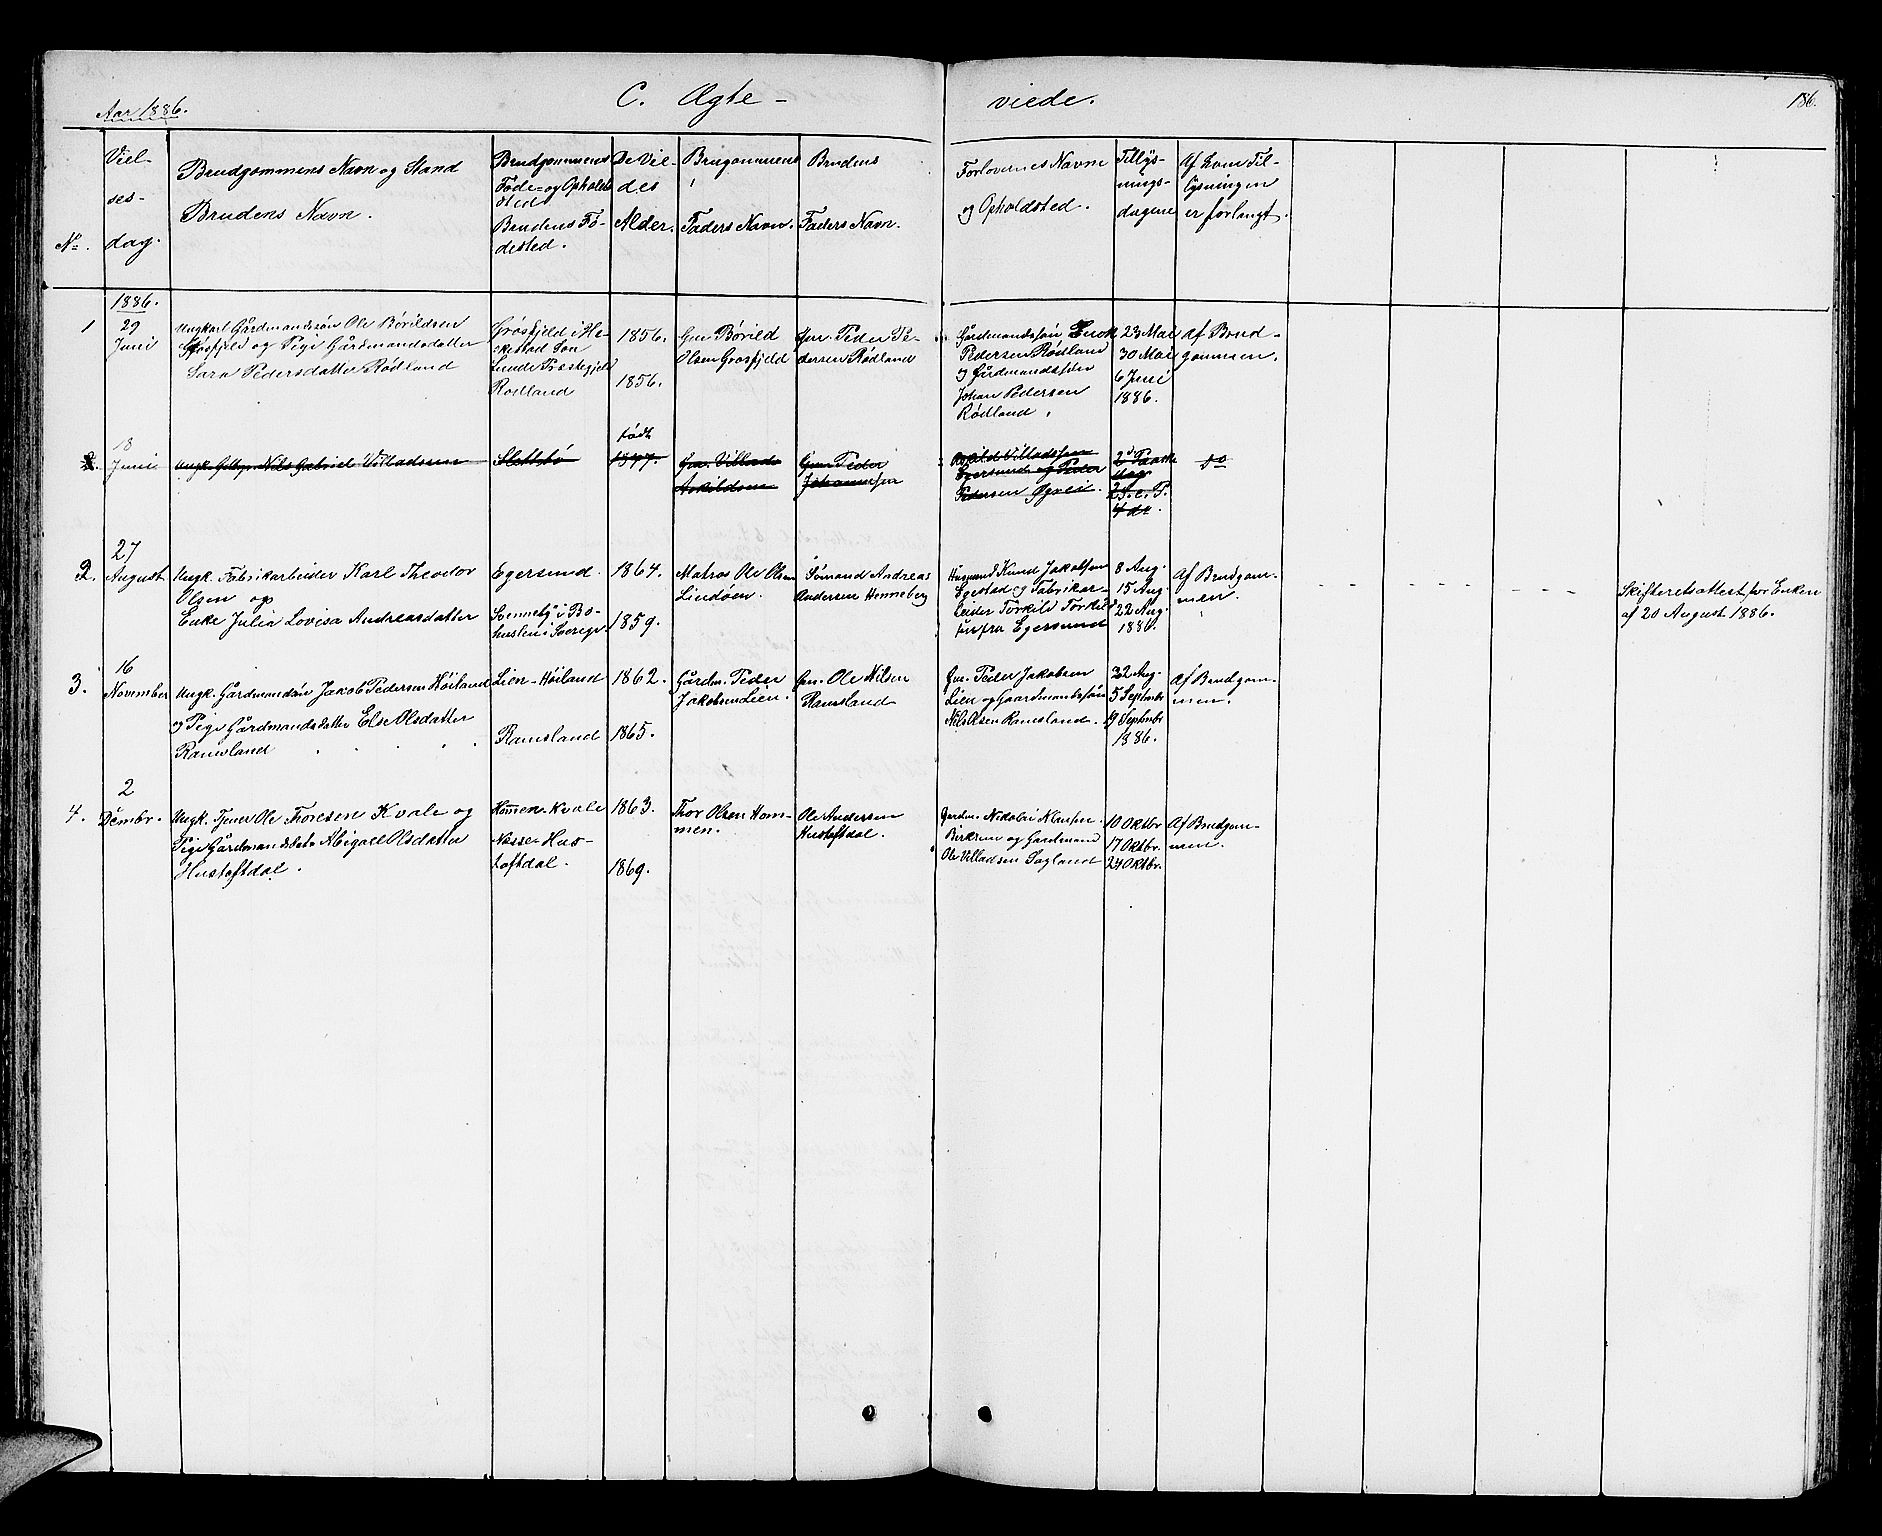 Aar 1886.
C. Ægte-
viede.
186.
No.
Viel-
ses-
dag.
Brudgommens Navn og Stand
Brudens Navn.
Brudgommens
Føde- og Opholds
sted
Brudens Fø-
dested.
De Vie-
des
Alder.
Brugommens
Faders Navn.
Brudens
Faders Navn.
Forlovernes Navne
og Opholdsted.
Tillys-
nings-
dagene
Af hvem Til-
lysningen
er forlangt.
1886.
1
29
Juni
Ungkarl Gårdmandssøn Ole Børildsen
Grøsfjeld og Pige Gårdmandsdatter
Sara Pedersdatter Rødland
Grøsfjeld i He-
skestad Sogn
Lunde Præstegjeld
Rødland
1856.
1856.
Gm. Børild
Olsen Grøsfjeld
Gm. Peder Pe-
dersen Rødland
Gårdmandssøn Enok
Pedersen Rødland
og Gårdmandssøn
Johan Pedersen
Rødland
23 Mai
30 Mai
6 Juni
1886.
Af Brud-
gommen.
2.
18
Juni
Ungk. Nils Gabriel Villadsen
Slettebø
født
1847.
Gm. Villads
Askildsen
Gm. Peder
Johannesen
Askild Villadssen
Egersund og Peder
Pedersen
2d Paaske
dag
2 S. e. P.
4 do.
do
2.
27
August
Ungk. Fabrikarbeider Karl Theodor
Olsen og
Enke Julia Lovisa Andreasdatter
Egersund.
i Bo-
huslen i Sverige.
1864.
1859.
Matros Ole Olsen
Lindøen.
Sømand Andreas
Andersen Henneberg
Husmand Knud Jakobsen
Egestad og Fabrikar-
beider Torkild Torkild-
sen fra Egersund
8 Aug.
15 Aug.
22 Aug.
1886.
Af Brudgom-
men.
Skifteretsattest for Enken
af 20 August 1886.
3.
16
November
Ungk. Gårdmandsøn Jakob Pedersen Høiland
og Pige Gårdmandsdatter Else Olsdatter
Ramsland
Lien - Høiland
Ramsland
1862.
1865.
Gårdm. Peder
Jakobsen Lien.
Gm. Ole Nilsen
Ramsland
Gm. Peder Jakobsen
Lien og Gaardmandssøn
Nils Olsen Ramsland.
22 Aug.
5 September
19 September
1886.
Af Brudgom-
men.
4.
2
Dembr.
Ungk. Tjener Ole Thoresen Kvale og
Pige Gårdmandsdatr Abigael Olsdatter
Hustoftdal.
Hommen-Kvale
Nesse-Hus-
toftdal.
1863.
1869.
Thor Olsen Hom-
men.
Ole Andersen
Hustoftdal.
Gardm. Nikolai
Birkrem og Gardmand
Ole Villadsen Sagland
10 Oktbr.
17 Oktbr.
24 Oktbr.
Af Brudgom-
men.